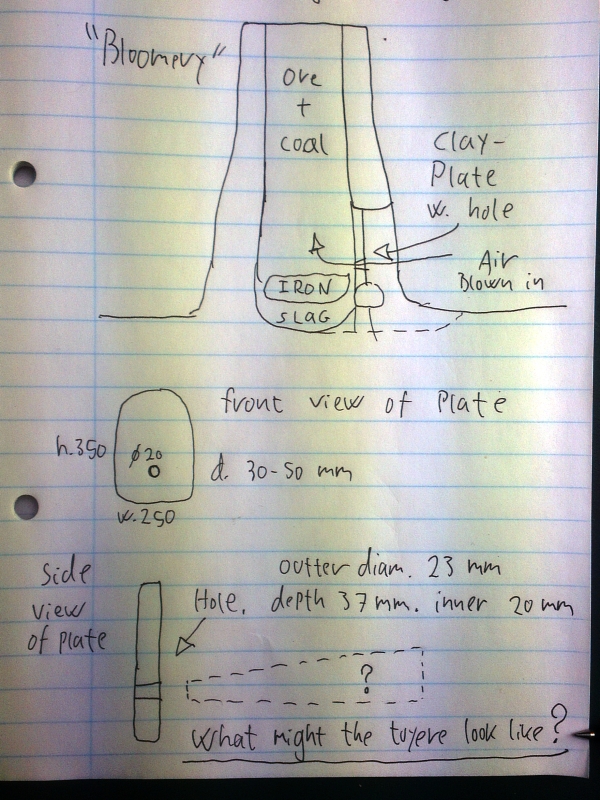 "Bloomery"
Ore
+
coal
Clay-
Plate
w. hole
Air
Blown in
IRON
SLAG
front view of Plate
h.350
ø20
d. 30-50 mm
w.250
Side
view
of plate
outter diam. 23 mm
Hole. depth 37 mm. inner 20 mm
?
What might the tuyere look like?